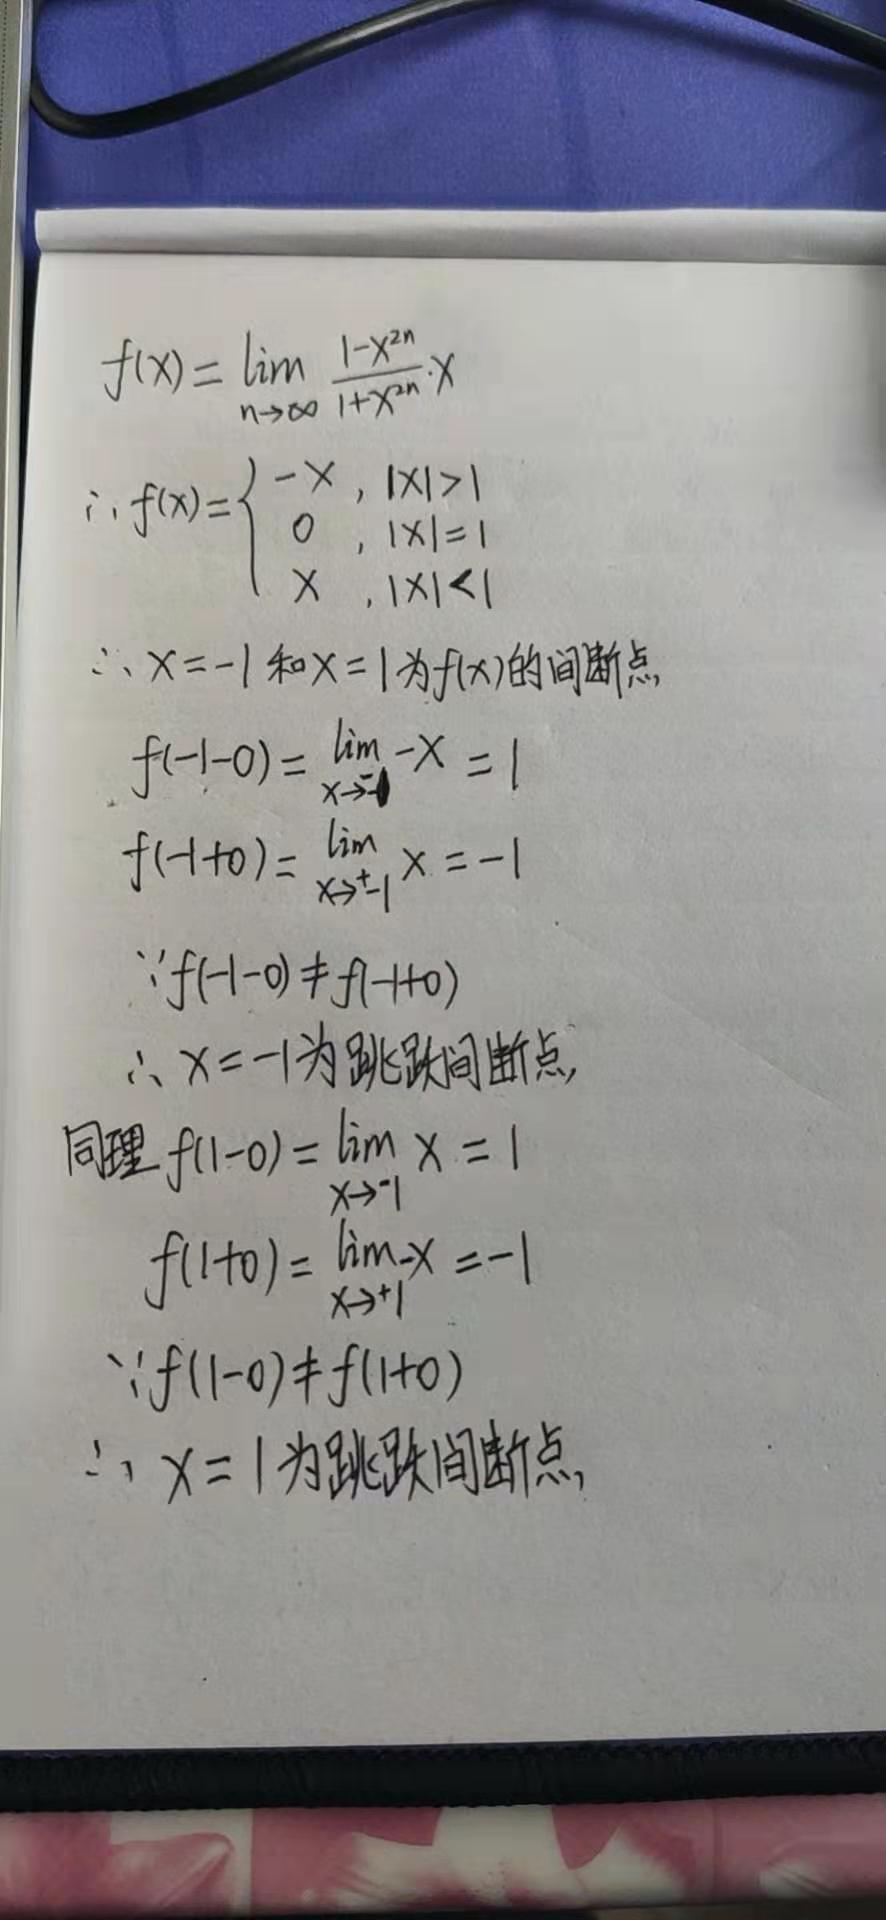 f(x)=lim n→∞ (1-x²ⁿ)/(1+x²ⁿ)·x
∴f(x)={ -x, |x|>1
0, |x|=1
x, |x|<1
∴x=-1和x=1为f(x)的间断点,
f(-1-0)=lim x→⁻-1 -x=1
f(-1+0)=lim x→⁺-1 x=-1
∵f(-1-0)≠f(-1+0)
∴x=-1为跳跃间断点,
同理f(1-0)=lim x→⁻1 x=1
f(1+0)=lim x→⁺1 -x=-1
∵f(1-0)≠f(1+0)
∴x=1为跳跃间断点,